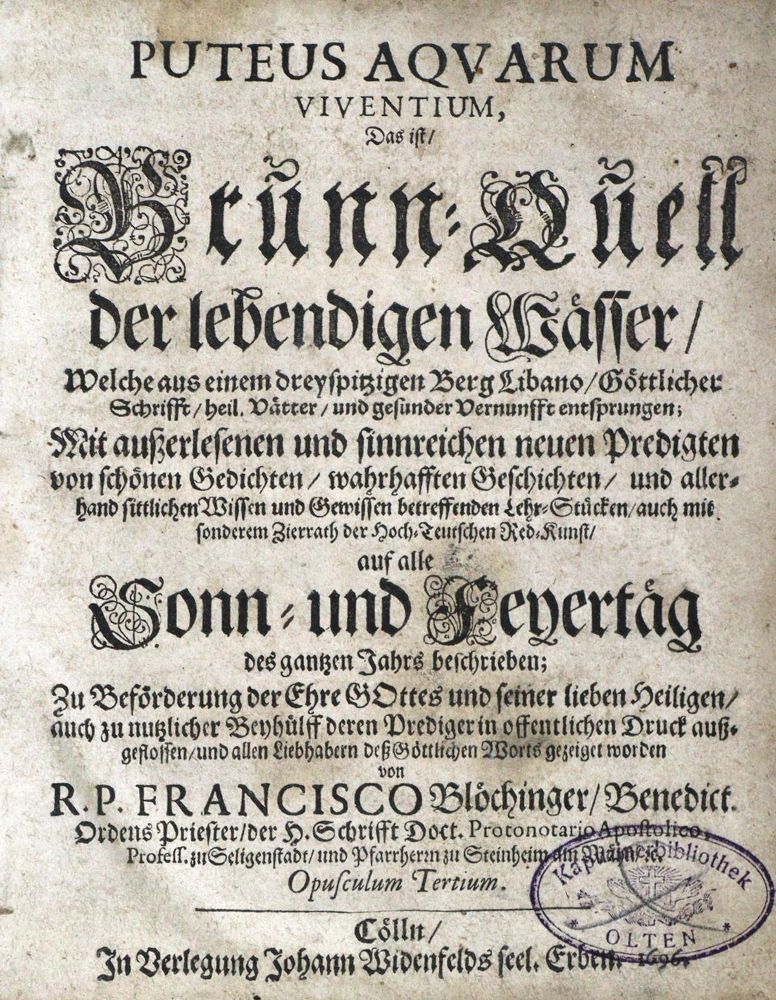 PUTEUS AQVARUM
VIVENTIUM,
Das ist/
Brũnn-Qũell
der lebendigen Wässer/
Welche aus einem dreyspitzigen Berg Libano/ Göttlicher
Schrifft/ heil. Vätter/ und gesunder Vernunfft entsprungen;
Mit außerlesenen und sinnreichen neuen Predigten
von schönen Gedichten/ wahrhafften Geschichten/ und aller-
hand sittlichen Wissen und Gewissen betreffenden Lehr-Stücken/ auch mit
sonderem Zierrath der Hoch-Teutschen Red-Kunst/
auf alle
Sonn- und Feyertäg
des gantzen Jahrs beschrieben;
Zu Beförderung der Ehre GOttes und seiner lieben Heiligen/
auch zu nutzlicher Beyhülff deren Prediger in offentlichen Druck auß-
geflossen/ und allen Liebhabern deß Göttlichen Worts gezeiget worden
von
R. P. FRANCISCO Blöchinger/ Benedict.
Ordens Priester/ der H. Schrifft Doct. Protonotario Apostolico,
Profess. zu Seligenstadt/ und Pfarrherrn zu Steinheim am Mäyn/ ꝛc.
Opusculum Tertium.
Kapuzinerbibliothek
* OLTEN *
Cölln/
In Verlegung Johann Widenfelds seel. Erben. 1696.